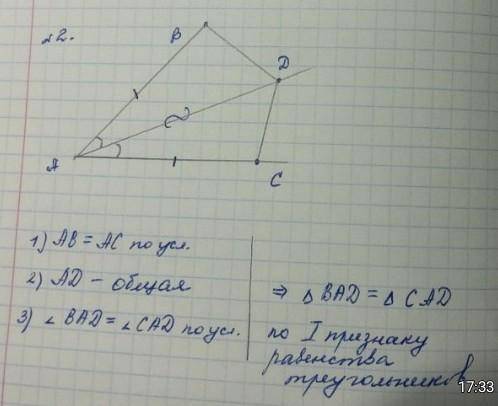 №2.
B
D
A
C
1) AB = AC по усл.
2) AD – общая
3) ∠ BAD = ∠ CAD по усл.
⇒ △ BAD = △ CAD
по I признаку
равенства
треугольников
17:33